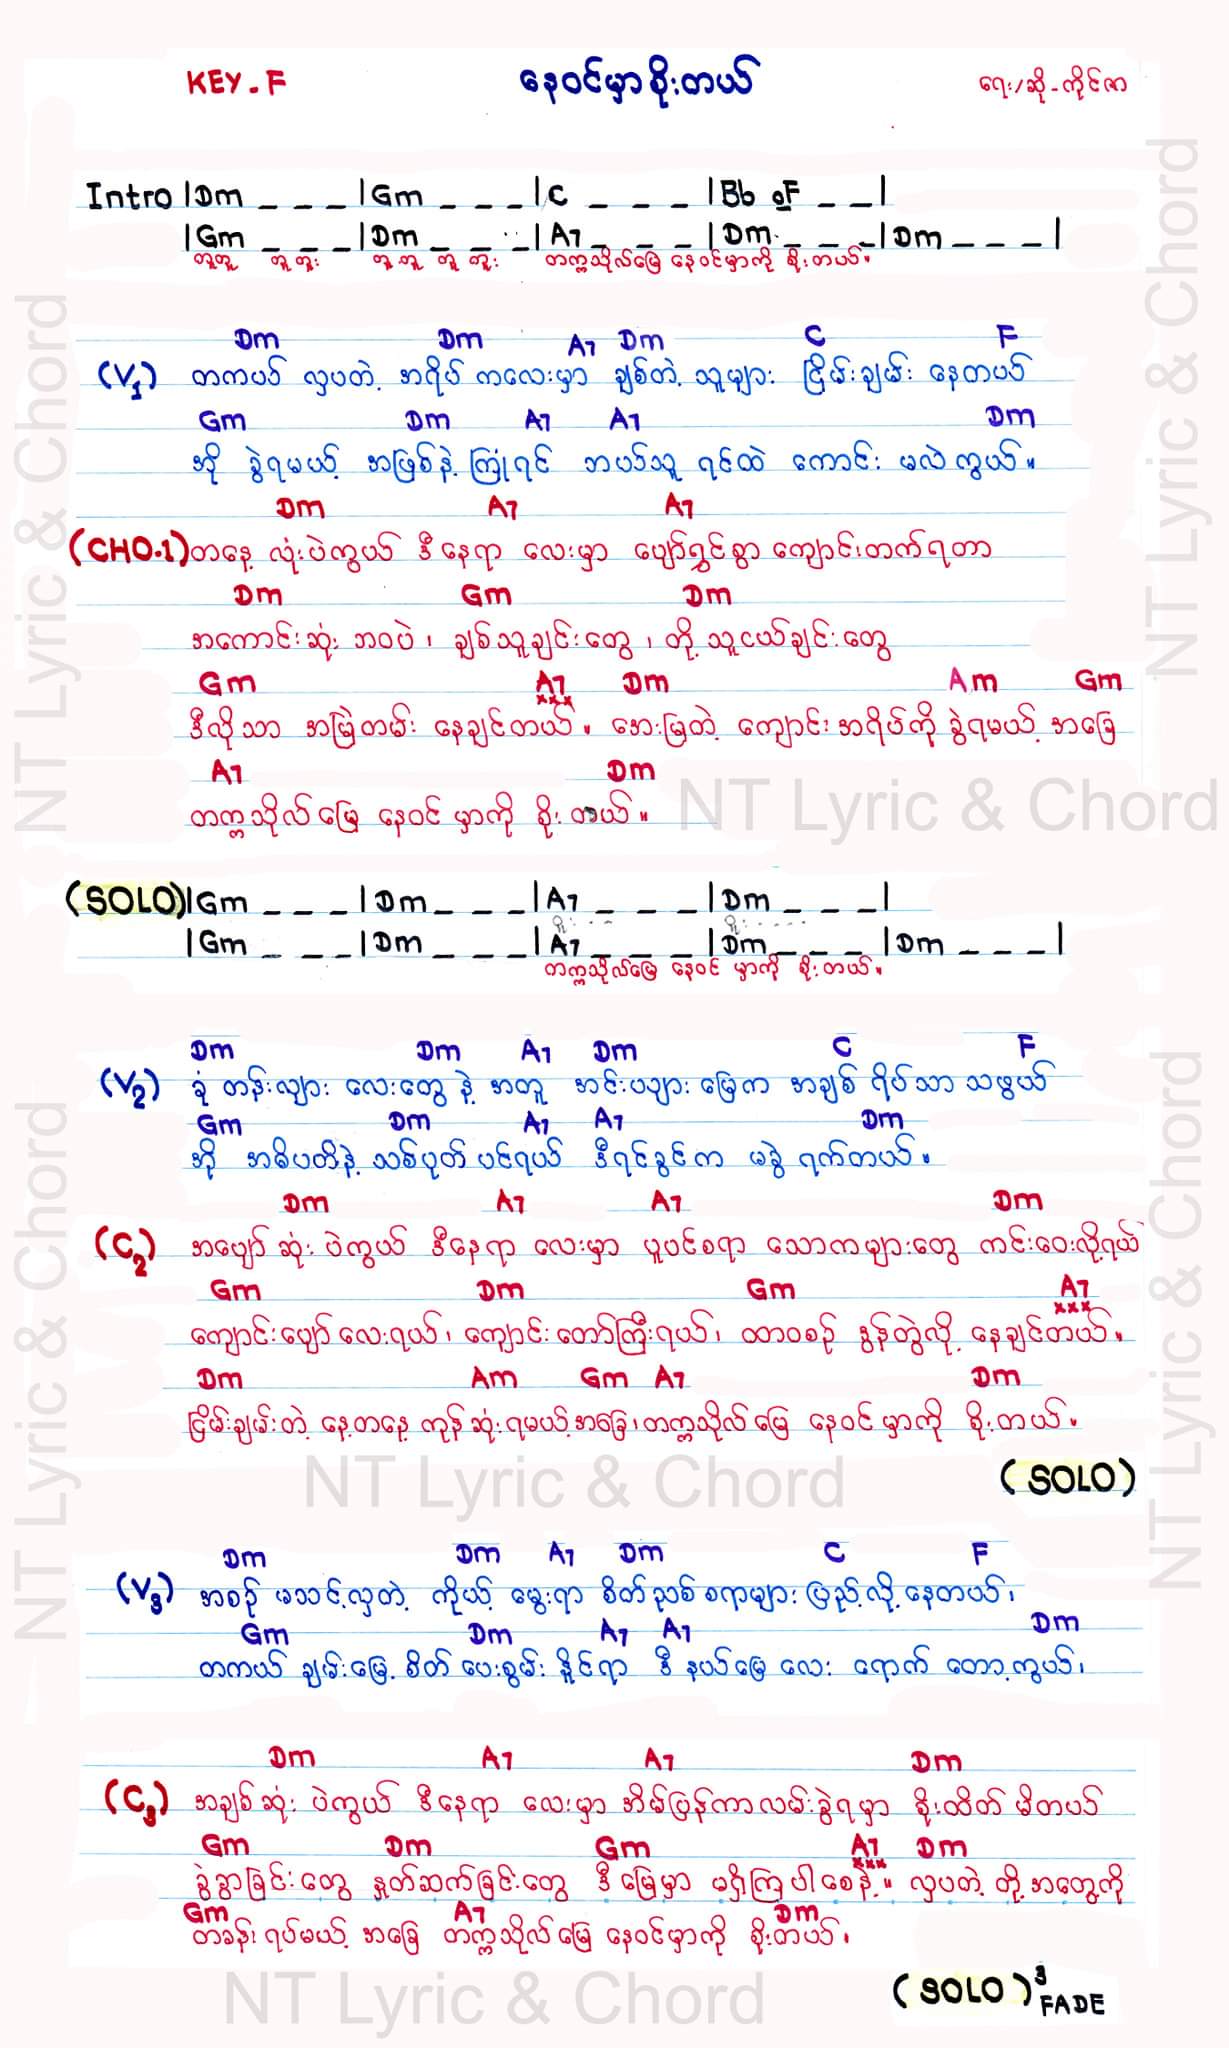 KEY-F နေဝင်မှာစိုးတယ် ရေး/ဆို-ကိုင်ဇာ
Intro |Dm _ _ _ |Gm _ _ _ |C _ _ _ |Bb oF _ _ |
|Gm _ _ _ |Dm _ _ _ |A7 _ _ _ |Dm _ _ _ |Dm _ _ _ |
တူတူ တူတူး တူတူ တူ တူး တက္ကသိုလ်မြေ နေဝင်မှာကို စိုးတယ်။
Dm Dm A7 Dm C F
(V1) တကယ် လှပတဲ့ အရိပ် ကလေးမှာ ချစ်တဲ့ သူများ ငြိမ်းချမ်း နေတယ်
Gm Dm A7 A7 Dm
အို ခွဲရမယ့် အဖြစ်နဲ့ ကြုံရင် ဘယ်သူ ရင်ထဲ ကောင်း မလဲ ကွယ်။
Dm A7 A7
(CHO.1) တနေ့ လုံးပဲကွယ် ဒီနေရာ လေးမှာ ပျော်ရွှင်စွာ ကျောင်းတက်ရတာ
Dm Gm Dm
အကောင်းဆုံး ဘဝပဲ၊ ချစ်သူချင်းတွေ၊ တို့ သူငယ်ချင်းတွေ
Gm A7 xxx Dm Am Gm
ဒီလိုသာ အမြဲတမ်း နေချင်တယ်။ အေးမြတဲ့ ကျောင်းအရိပ်ကို ခွဲရမယ့် အခြေ
A7 Dm
တက္ကသိုလ်မြေ နေဝင် မှာကို စိုးတယ်။
(SOLO) |Gm _ _ _ |Dm _ _ _ |A7 _ _ _ |Dm _ _ _ |
|Gm _ _ _ |Dm _ _ _ |A7 _ _ _ |Dm _ _ _ |Dm _ _ _ |
တက္ကသိုလ်မြေ နေဝင် မှာကို စိုးတယ်။
Dm Dm A7 Dm C F
(V2) ခုံ တန်းလျား လေးတွေ နဲ့ အတူ အင်းယျား မြေက အချစ် ရိပ်သာ သဖွယ်
Gm Dm A7 A7 Dm
အို အဓိပတိနဲ့ သစ်ပုတ်ပင်ရယ် ဒီရင်ခွင်က မခွဲ ရက်တယ်။
Dm A7 A7 Dm
(C2) အပျော်ဆုံး ပဲကွယ် ဒီနေရာ လေးမှာ ပူပင်စရာ သောကများတွေ ကင်းဝေးလို့ရယ်
Gm Dm Gm A7 xxx
ကျောင်းပျော်လေးရယ်၊ ကျောင်းတော်ကြီးရယ်၊ ထာဝစဉ် နွန်တွဲလို့ နေချင်တယ်။
Dm Am Gm A7 Dm
ငြိမ်းချမ်းတဲ့ နေ့တနေ့ ကုန်ဆုံးရမယ့်အခြေ၊ တက္ကသိုလ်မြေ နေဝင် မှာကို စိုးတယ်။
(SOLO)
Dm Dm A7 Dm C F
(V3) အစဉ် မသင့်လှတဲ့ ကိုယ့် မွေးရာ စိတ်ညစ်စရာများ ပြည့်လို့နေတယ်၊
Gm Dm A7 A7 Dm
တကယ် ချမ်းမြေ့ စိတ် ပေးစွမ်း နိူင်ရာ ဒီ နယ်မြေ လေး ရောက် တော့ကွယ်၊
Dm A7 A7 Dm
(C3) အချစ်ဆုံး ပဲကွယ် ဒီနေရာ လေးမှာ အိမ်ပြန်ကာလမ်းခွဲရမှာ စိုးထိတ် မိတယ်
Gm Dm Gm A7 xxx Dm
ခွဲခွာခြင်းတွေ နှုတ်ဆက်ခြင်းတွေ ဒီမြေမှာ မရှိကြပါစေနဲ့။ လှပတဲ့ တို့ အတွေ့ကို
Gm A7 Dm
တခန်း ရပ်မယ့် အခြေ တက္ကသိုလ်မြေ နေဝင်မှာကို စိုးတယ်။
(SOLO) 3 FADE
NT Lyric & Chord
NT Lyric & Chord
NT Lyric & Chord
NT Lyric & Chord
NT Lyric & Chord
NT Lyric & Chord
NT Lyric & Chord